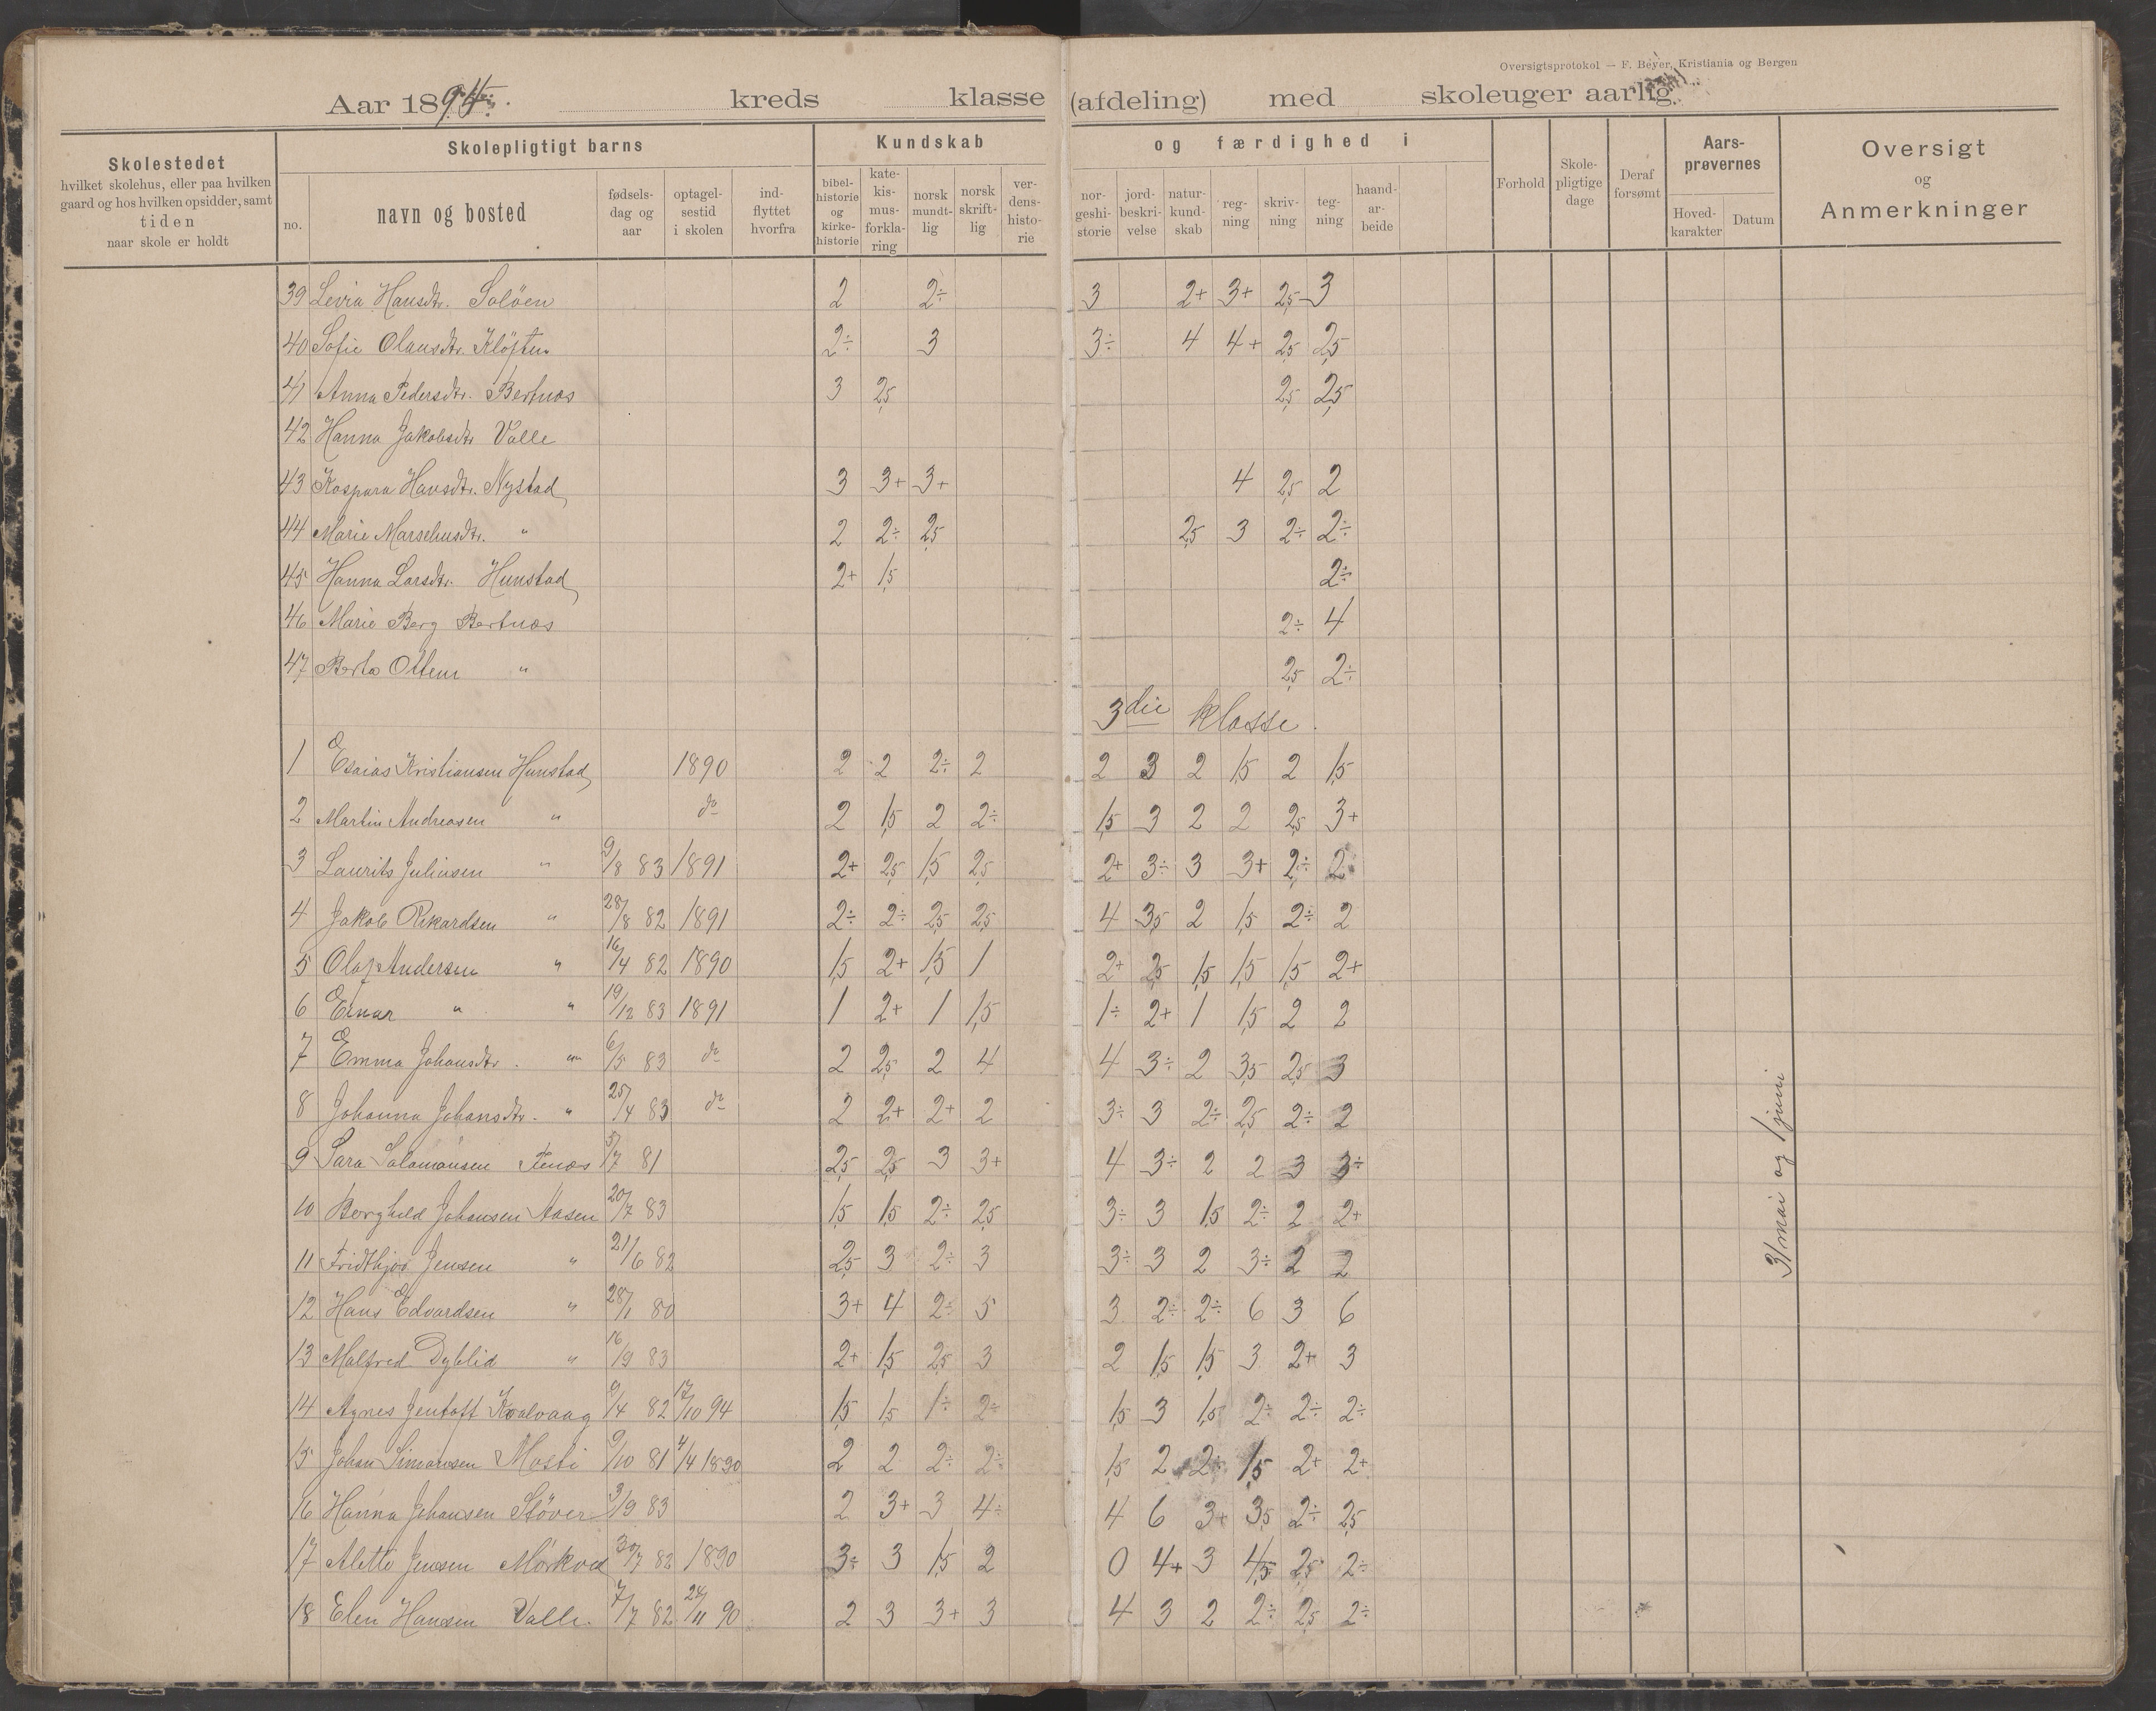 Oversigtsprotokol — F. Beyer, Kristiania og Bergen
Aar 1894. kreds klasse (afdeling) med skoleuger aarlig
Skolestedet
hvilket skolehus, eller paa hvilken
gaard og hos hvilken opsidder, samt
tiden
naar skole er holdt
Skolepligtigt barns
no.
navn og bosted
fødsels-
dag og
aar
optagel-
sestid
i skolen
ind-
flyttet
hvorfra
Kundskab og færdighed i
bibel-
historie
og
kirke-
historie
kate-
kis-
mus-
forkla-
ring
norsk
mundt-
lig
norsk
skrift-
lig
ver-
dens-
histo-
rie
nor-
geshi-
storie
jord-
beskri-
velse
natur-
kund-
skab
reg-
ning
skriv-
ning
teg-
ning
haand-
ar-
beide
Forhold
Skole-
pligtige
dage
Deraf
forsømt
Aars-
prøvernes
Hoved-
karakter
Datum
Oversigt
og
Anmerkninger
39 Levia Hansdtr. Soløen 2 2÷ 3 2+ 3+ 2,5 3
40 Sofie Olausdtr. Kløften 2÷ 3 3÷ 4 4+ 2,5 2,5
41 Anna Pedersdtr. Bertnæs 3 2,5 2,5 2,5
42 Hanna Jakobsdtr Valle
43 Kaspara Hansdtr. Nystad 3 3+ 3+ 4 2,5 2
44 Marie " 2 2÷ 2,5 2,5 3 2÷ 2÷
45 Hanna Larsdtr. Hunstad 2+ 1,5 2÷
46 Marie Berg Bertnæs 2÷ 4
47 Berta Ottem " 2,5 2÷
3die klasse.
1 Esaias Kristiansen Hunstad 1890 2 2 2÷ 2 2 3 2 1,5 2 1,5
2 Martin Andreasen " do 2 1,5 2 2÷ 1,5 3 2 2 2,5 3+
3 Laurits Juliusen " 9/8 83 1891 2+ 2,5 1,5 2,5 2+ 3÷ 3 3+ 2÷ 2
4 Jakob Rikardsen " 28/8 82 1891 2÷ 2÷ 2,5 2,5 4 3,5 2 1,5 2÷ 2
5 Olaf Andersen " 16/4 82 1890 1,5 2+ 1,5 1 2+ 2,5 1,5 1,5 1,5 2+
6 Einar " " 19/12 83 1891 1 2+ 1 1,5 1÷ 2+ 1 1,5 2 2
7 Emma Johansdtr. " 6/5 83 do 2 2,5 2 4 4 3÷ 2 3,5 2,5 3
8 Johanna Johansdtr. " 25/4 83 do 2 2+ 2+ 2 3÷ 3 2÷ 2,5 2÷ 2
9 Sara Salamonsen 5/7 81 2,5 2,5 3 3+ 4 3÷ 2 2 3 3÷
10 Borghild Johansen Aasen 20/7 83 1,5 1,5 2÷ 2,5 3÷ 3 1,5 2÷ 2 2+
11 Fridthjof Jensen " 21/6 82 2,5 3 2÷ 3 3÷ 3 2 3÷ 2 2
12 Hans Edvardsen " 28/1 80 3+ 4 2÷ 5 3 2÷ 2÷ 6 3 6
13 Malfred Dyblid " 16/9 83 2+ 1,5 2,5 3 2 1,5 1,5 3 2+ 3
14 Agnes Jentoft Kvalvaag 9/4 82 17/10 94 1,5 1,5 1÷ 2÷ 1,5 3 1,5 2÷ 2÷ 2÷
15 Johan Simonsen Mosti 9/10 81 4/4 1890 2 2 2÷ 2÷ 1,5 2 2+ 1,5 2+ 2+
16 Hanna Johansen Støver 3/9 83 2 3+ 3 4÷ 4 6 3+ 3,5 2÷ 2,5
17 Alette Jensen Mørkved 30/7 82 1890 3÷ 3 1,5 2 0 4+ 3 4,5 2,5 2÷
18 Elen Hansen Valle. 7/7 82 24/11 90 2 3 3+ 3 4 3 2 2÷ 2,5 2÷
31 mai og 1 juni